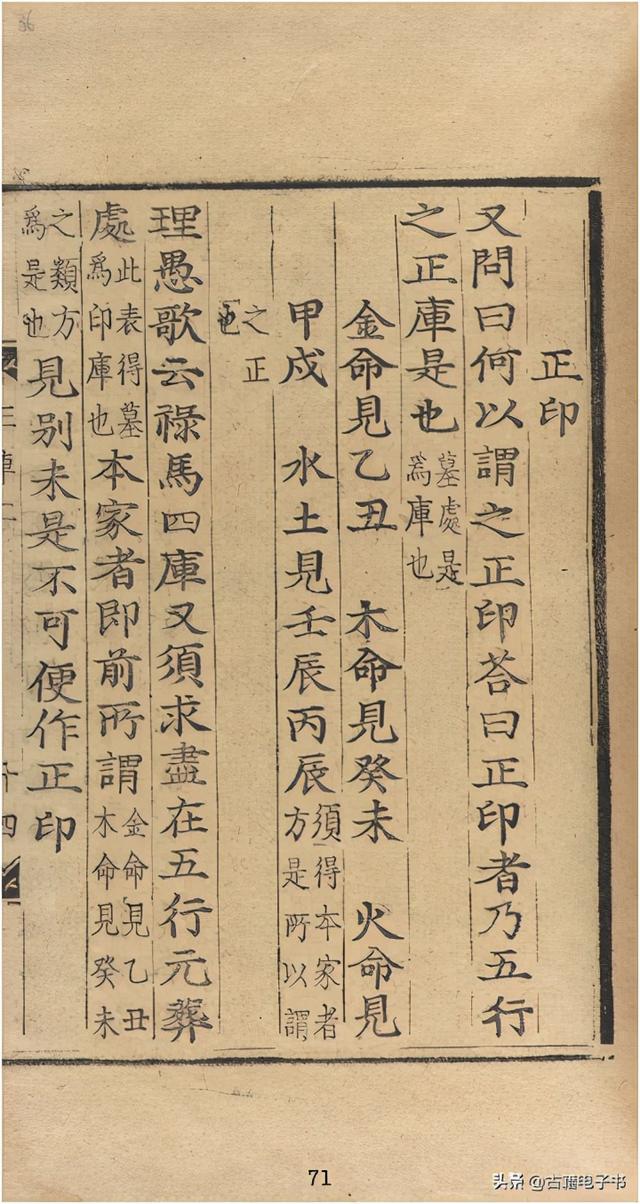 正印
又問曰何以謂之正印荅曰正印者乃五行
之正庫是也墓處是爲庫也
金命見乙丑 木命見癸未 火命見
甲戌 水土見壬辰丙辰須得本家者方是所以謂
之正也
理愚歌云祿馬四庫又須求盡在五行元葬
處此表得墓爲印庫也本家者即前所謂金命見乙丑木命見癸未
之類方爲是也見別未是不可便作正印
71
头条 @古籍电子书